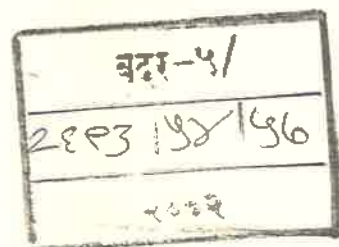 बदर-५/
२६९३ |५४|५७